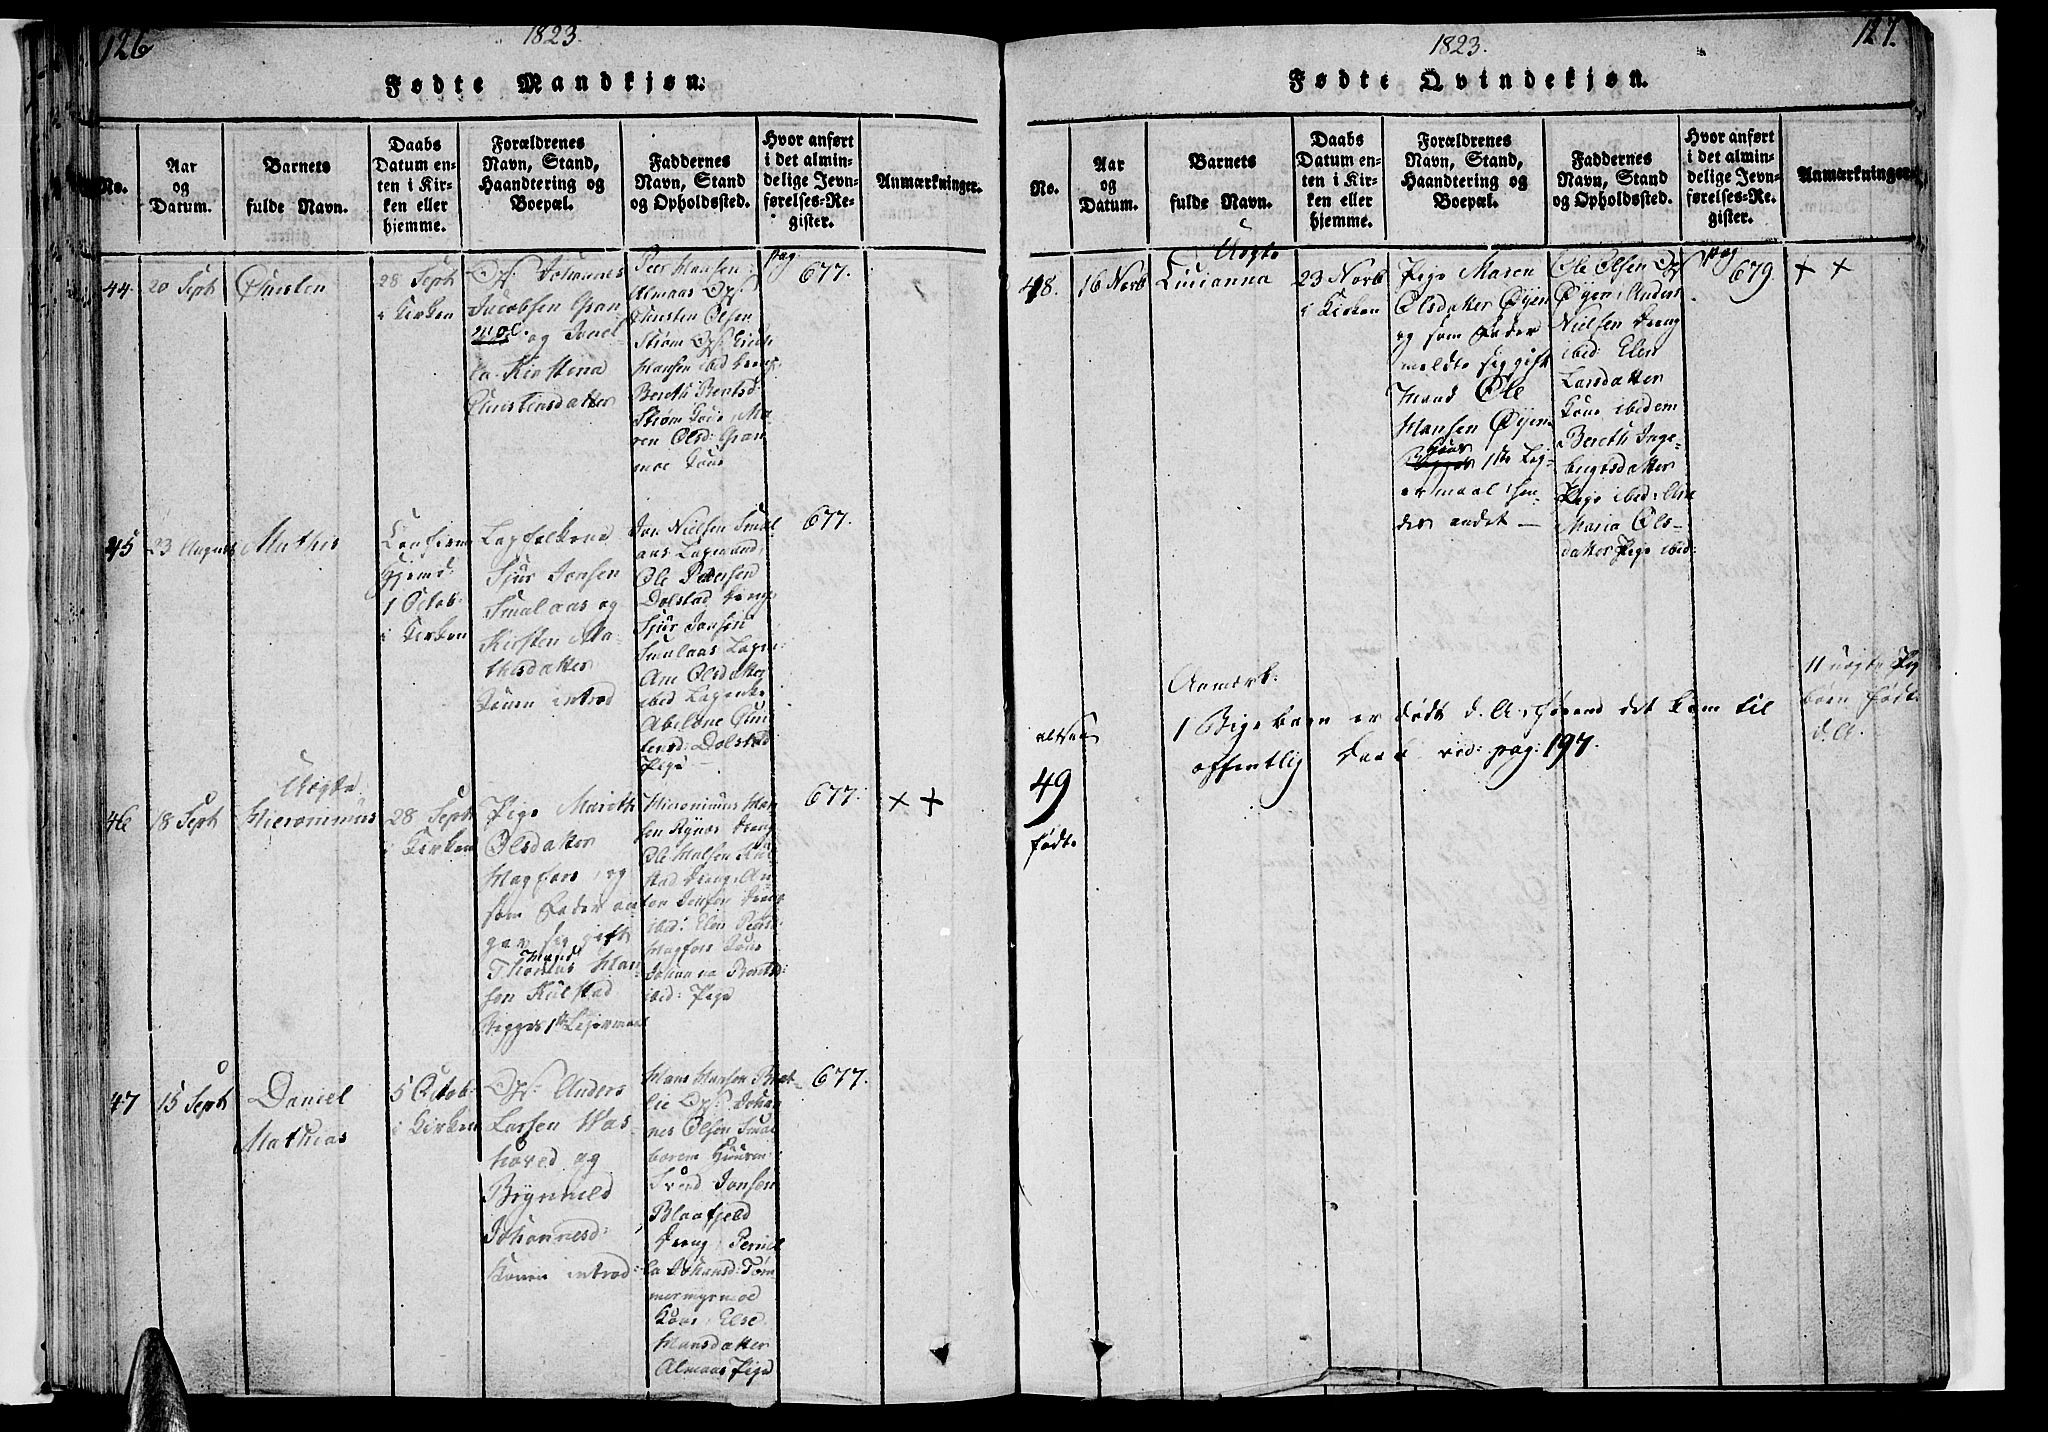 126
1823.
Fødte Mandkjøn.
No.
Aar
og
Datum.
Barnets
fulde Navn.
Daabs
Datum en-
ten i Kir-
ken eller
hjemme.
Forældrenes
Navn, Stand,
Haandtering og
Boepæl.
Faddernes
Navn, Stand
og Opholdssted.
Hvor anført
i det almin-
delige Jevn-
førelses-Re-
gister.
Anmærkninger.
44.
20 Sept
Christen
28 Sept
i Kirken
Johannes
Jacobsen Gran-
moe. og
Kirstina
Christensdatter
Peer Hansen
Almaas
Christen Olsen
Strøm
Hansen ibid
Bereth Bentsd:
Strøm Kone, Ma-
ren Olsd: Gran-
moe Kone
pag
677.
45
23 August
Mathis
Confirm
Hjemd:
1 Octob:
i Kirken
Lapfolkene
Sjur Jonsen
Smalaas og
Kirsten Ma-
thisdatter
Konen introd
Jon Nielsen Smal
aas Lapmand,
Ole Pedersen
Dolstad Dreng
Sjur Jonsen
Smalaas Lapm:
Ane Olsdatter
ibid Lapenke
Abelone
Dolstad
Pige
677.
46
18 Sept
Uægte
Hieronimus
28 Sept
i Kirken
Pige Mareth
Olsdatter
Hagfors, og
som Fader an
gav sig gift
Mand
Thomas Han-
sen Kulstad
Begges 1ste Leiermaal
Hieronimus Han
sen Rynes Dreng
Ole Halsen Kul
stad Dreng, An
ton Jensen Dreng
ibid: Elen Pedersd:
Hagfors Kone
Johanna
ibid: Pige
677.
+ +
47
15 Sept
Daniel
Mathias
5 Octob:
i Kirken
Anders
Larsen Was-
hoved og
Brynnild
Johannesd:
Konen introd:
Hans Hansen Brat-
lie Johan
nes Olsen Smal
Svend Jonsen
Blaafjeld
Dreng, Pernil
la Johansd: Tøm
mermyrmoe
Kone, Else
Hansdatter
Almaas Pige
677.
127.
1823.
Fødte Qvindekjøn.
No.
Aar
og
Datum.
Barnets
fulde Navn.
Daabs
Datum en-
ten i Kir-
ken eller
hjemme.
Forældrenes
Navn, Stand,
Haandtering og
Boepæl.
Faddernes
Navn, Stand
og Opholdssted.
Hvor anført
i det almin-
delige Jevn-
førelses-Re-
gister.
Anmærkninger.
48.
16 Novb
Uægte
Lucianna
23 Novb
i Kirken
Pige Maren
Olsdatter Øyen
og som Fader
meldte sig gift
Mand Ole
Hansen Øyen
1ste Lej-
ermaal, hen-
des andet —
Ole Olsen
Øyen, Anders
Nielsen Dreng
ibid: Elen
Larsdatter
Kone ibidem
Bereth Inge-
brigtsdatter
Pige ibid:
Maria Ols-
datter Pige ibid:
pag
679.
+ +
altsaa
49
fødte
Anmærk:
1 Pigebarn er født d. A. førend det kom til
offentlig Daab vid: pag: 197.
11 uægte Pige
børn fødte
d. A.